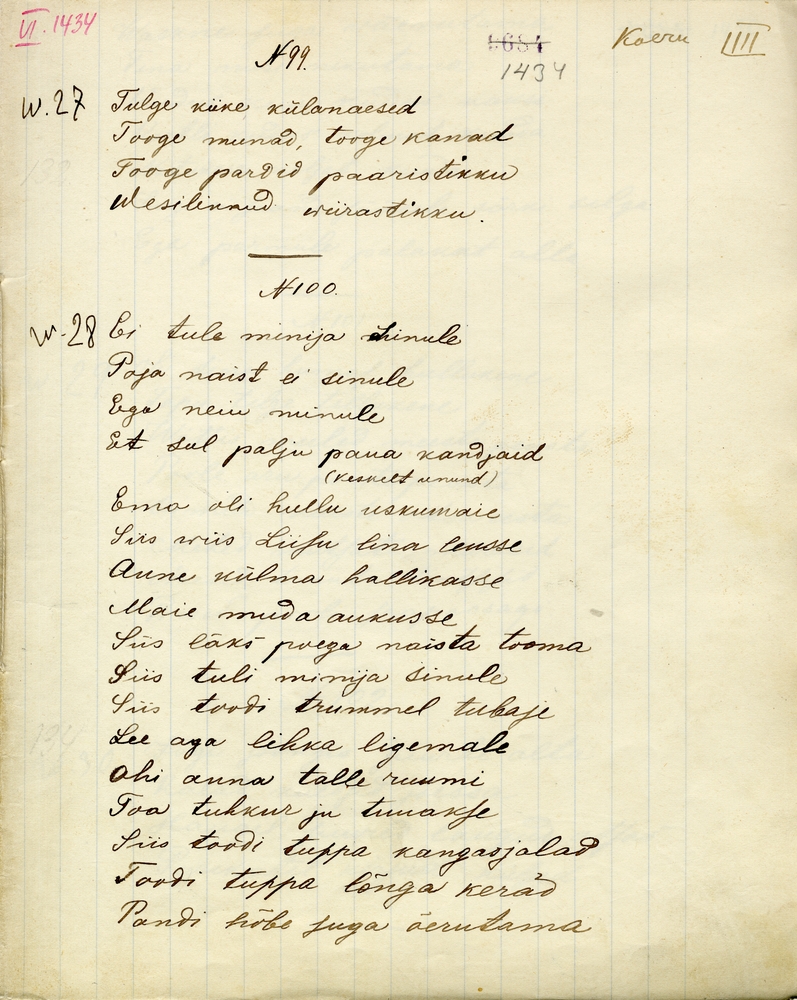 VI. 1434
N 99.
1434
Koeru IIII
W. 27 Tulge kiike külanaesed
Tooge munad, tooge kanad
Tooge pardid paaristikku
Wesilinnud wiirastikku.
N 100.
W. 28 Ei tule minija sinule
Poja naist ei sinule
Ega neiu minule
Et sul palju paua kandjaid
(keskelt unund)
Ema oli hullu uskumaie
Siis wiis Liisu lina leusse
Anne külma hallikasse
Maie muda aukusse
Siis läks poega naista tooma
Siis tuli minija sinule
Siis toodi trummel tubaje
Lee aga lihka ligemale
Ahi anna talle ruumi
Toa tuhkur ju tuuakse
Siis toodi tuppa kangasjalad
Toodi tuppa lõnga keräd
Pandi hõbe suga õerutama